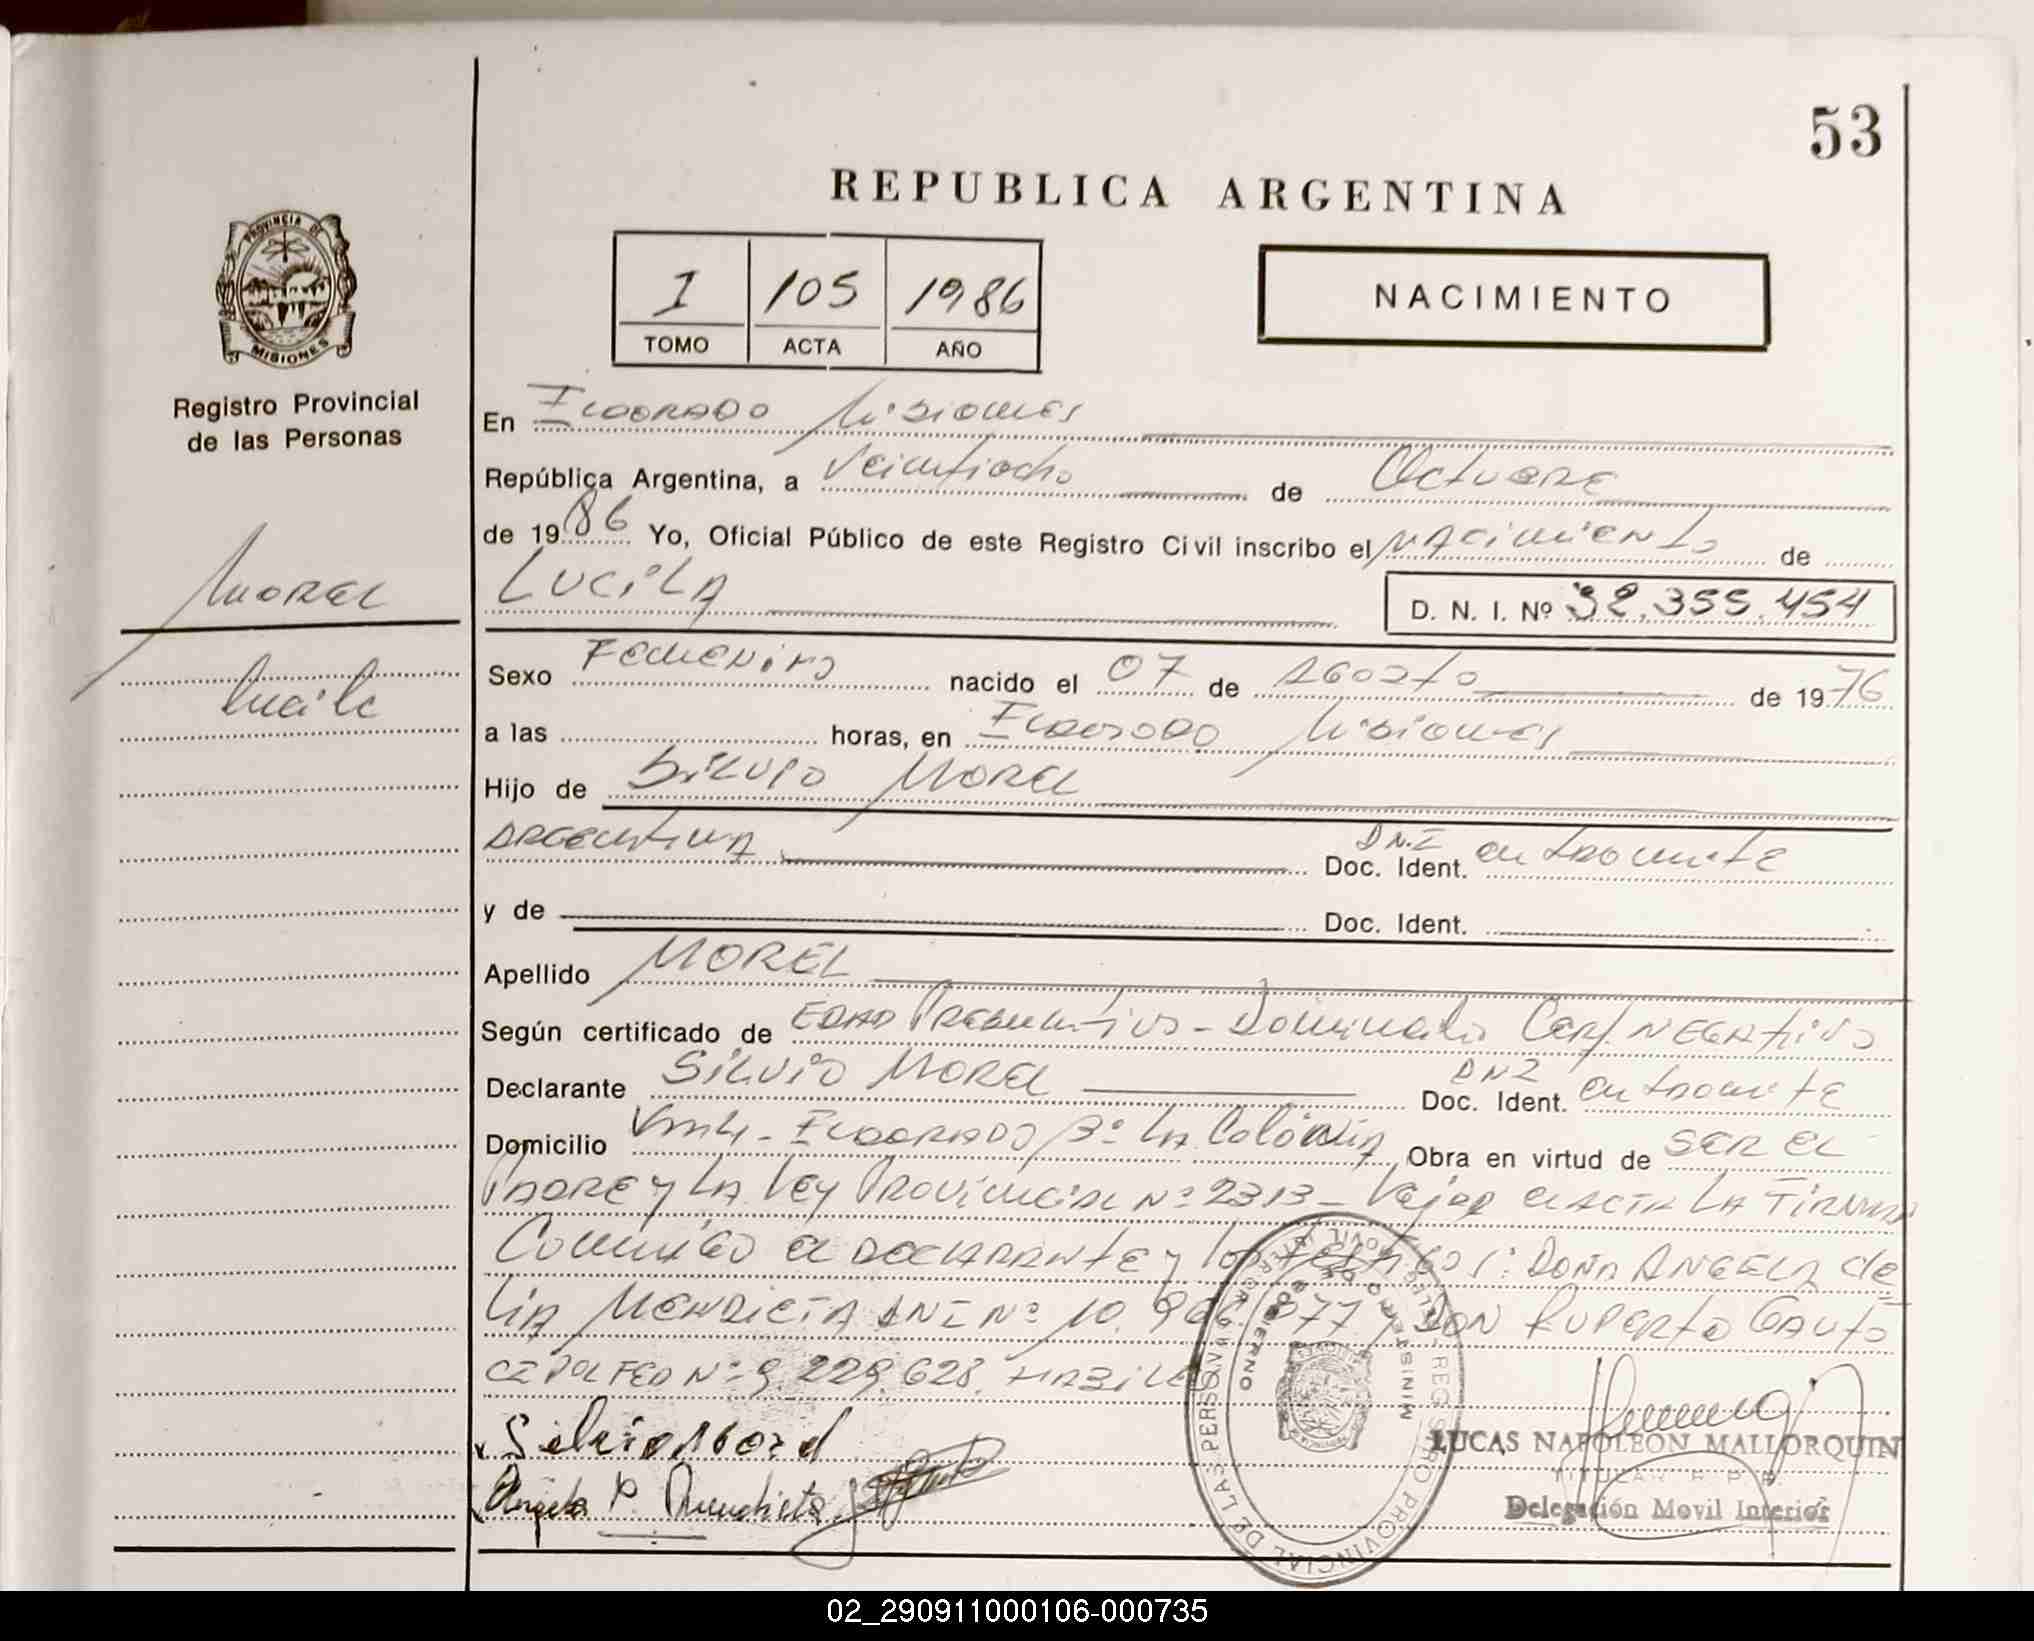 53
REPUBLICA ARGENTINA
I 105 1986
TOMO ACTA AÑO
NACIMIENTO
PROVINCIA DE MISIONES
Registro Provincial
de las Personas
MOREL
Lucila
En ELDORADO Misiones
República Argentina, a Veintiocho de Octubre
de 1986 Yo, Oficial Público de este Registro Civil inscribo el NACIMIENTO de
LUCILA D. N. I. Nº 32.355.454
Sexo Femenino nacido el 07 de Agosto de 1976
a las horas, en Eldorado Misiones
Hijo de SILVIO MOREL
ARGENTINA Doc. Ident. DNI en tramite
y de Doc. Ident.
Apellido MOREL
Según certificado de EDAD Presuntiva - Dominada Cert NEGATIVO
Declarante SILVIO MOREL Doc. Ident. DNI en tramite
Domicilio Km 4 - ELDORADO Bº LA COLONIA Obra en virtud de SER EL
PADRE y LA Ley Provincial Nº 2313 - LA FIRMA
Conmigo el DECLARANTE y los testigos: DOÑA ANGELA de
LIA MENDIETA DNI Nº 10. 977 y DON RUPERTO GAUTO
CI POL FED Nº 9.229.628. HABILES
Silvio Morel
Angela P. Mendieta
REGISTRO PROVINCIAL DE LAS PERSONAS
MINISTERIO DE GOBIERNO
LUCAS NAPOLEON MALLORQUIN
TITULAR R. P. P.
Delegación Movil Interior
02_290911000106-000735